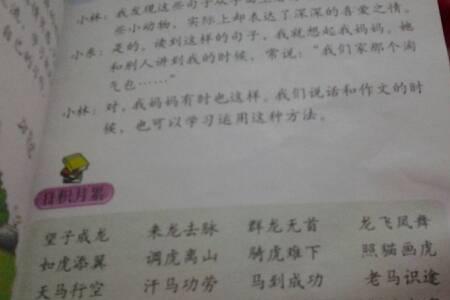 小林：我发现这些句子从字面上看
些小动物，实际上却表达了深深的喜爱之情。
小东：是的，读到这样的句子，我就想起我妈妈。她
和别人讲到我的时候，常说：“我们家那个淘
气包……”
小林：对，我妈妈有时也这样。我们说话和作文的时
候，也可以学习运用这种方法。
日积月累
望子成龙 来龙去脉 群龙无首 龙飞凤舞
如虎添翼 调虎离山 骑虎难下 照猫画虎
天马行空 汗马功劳 马到成功 老马识途